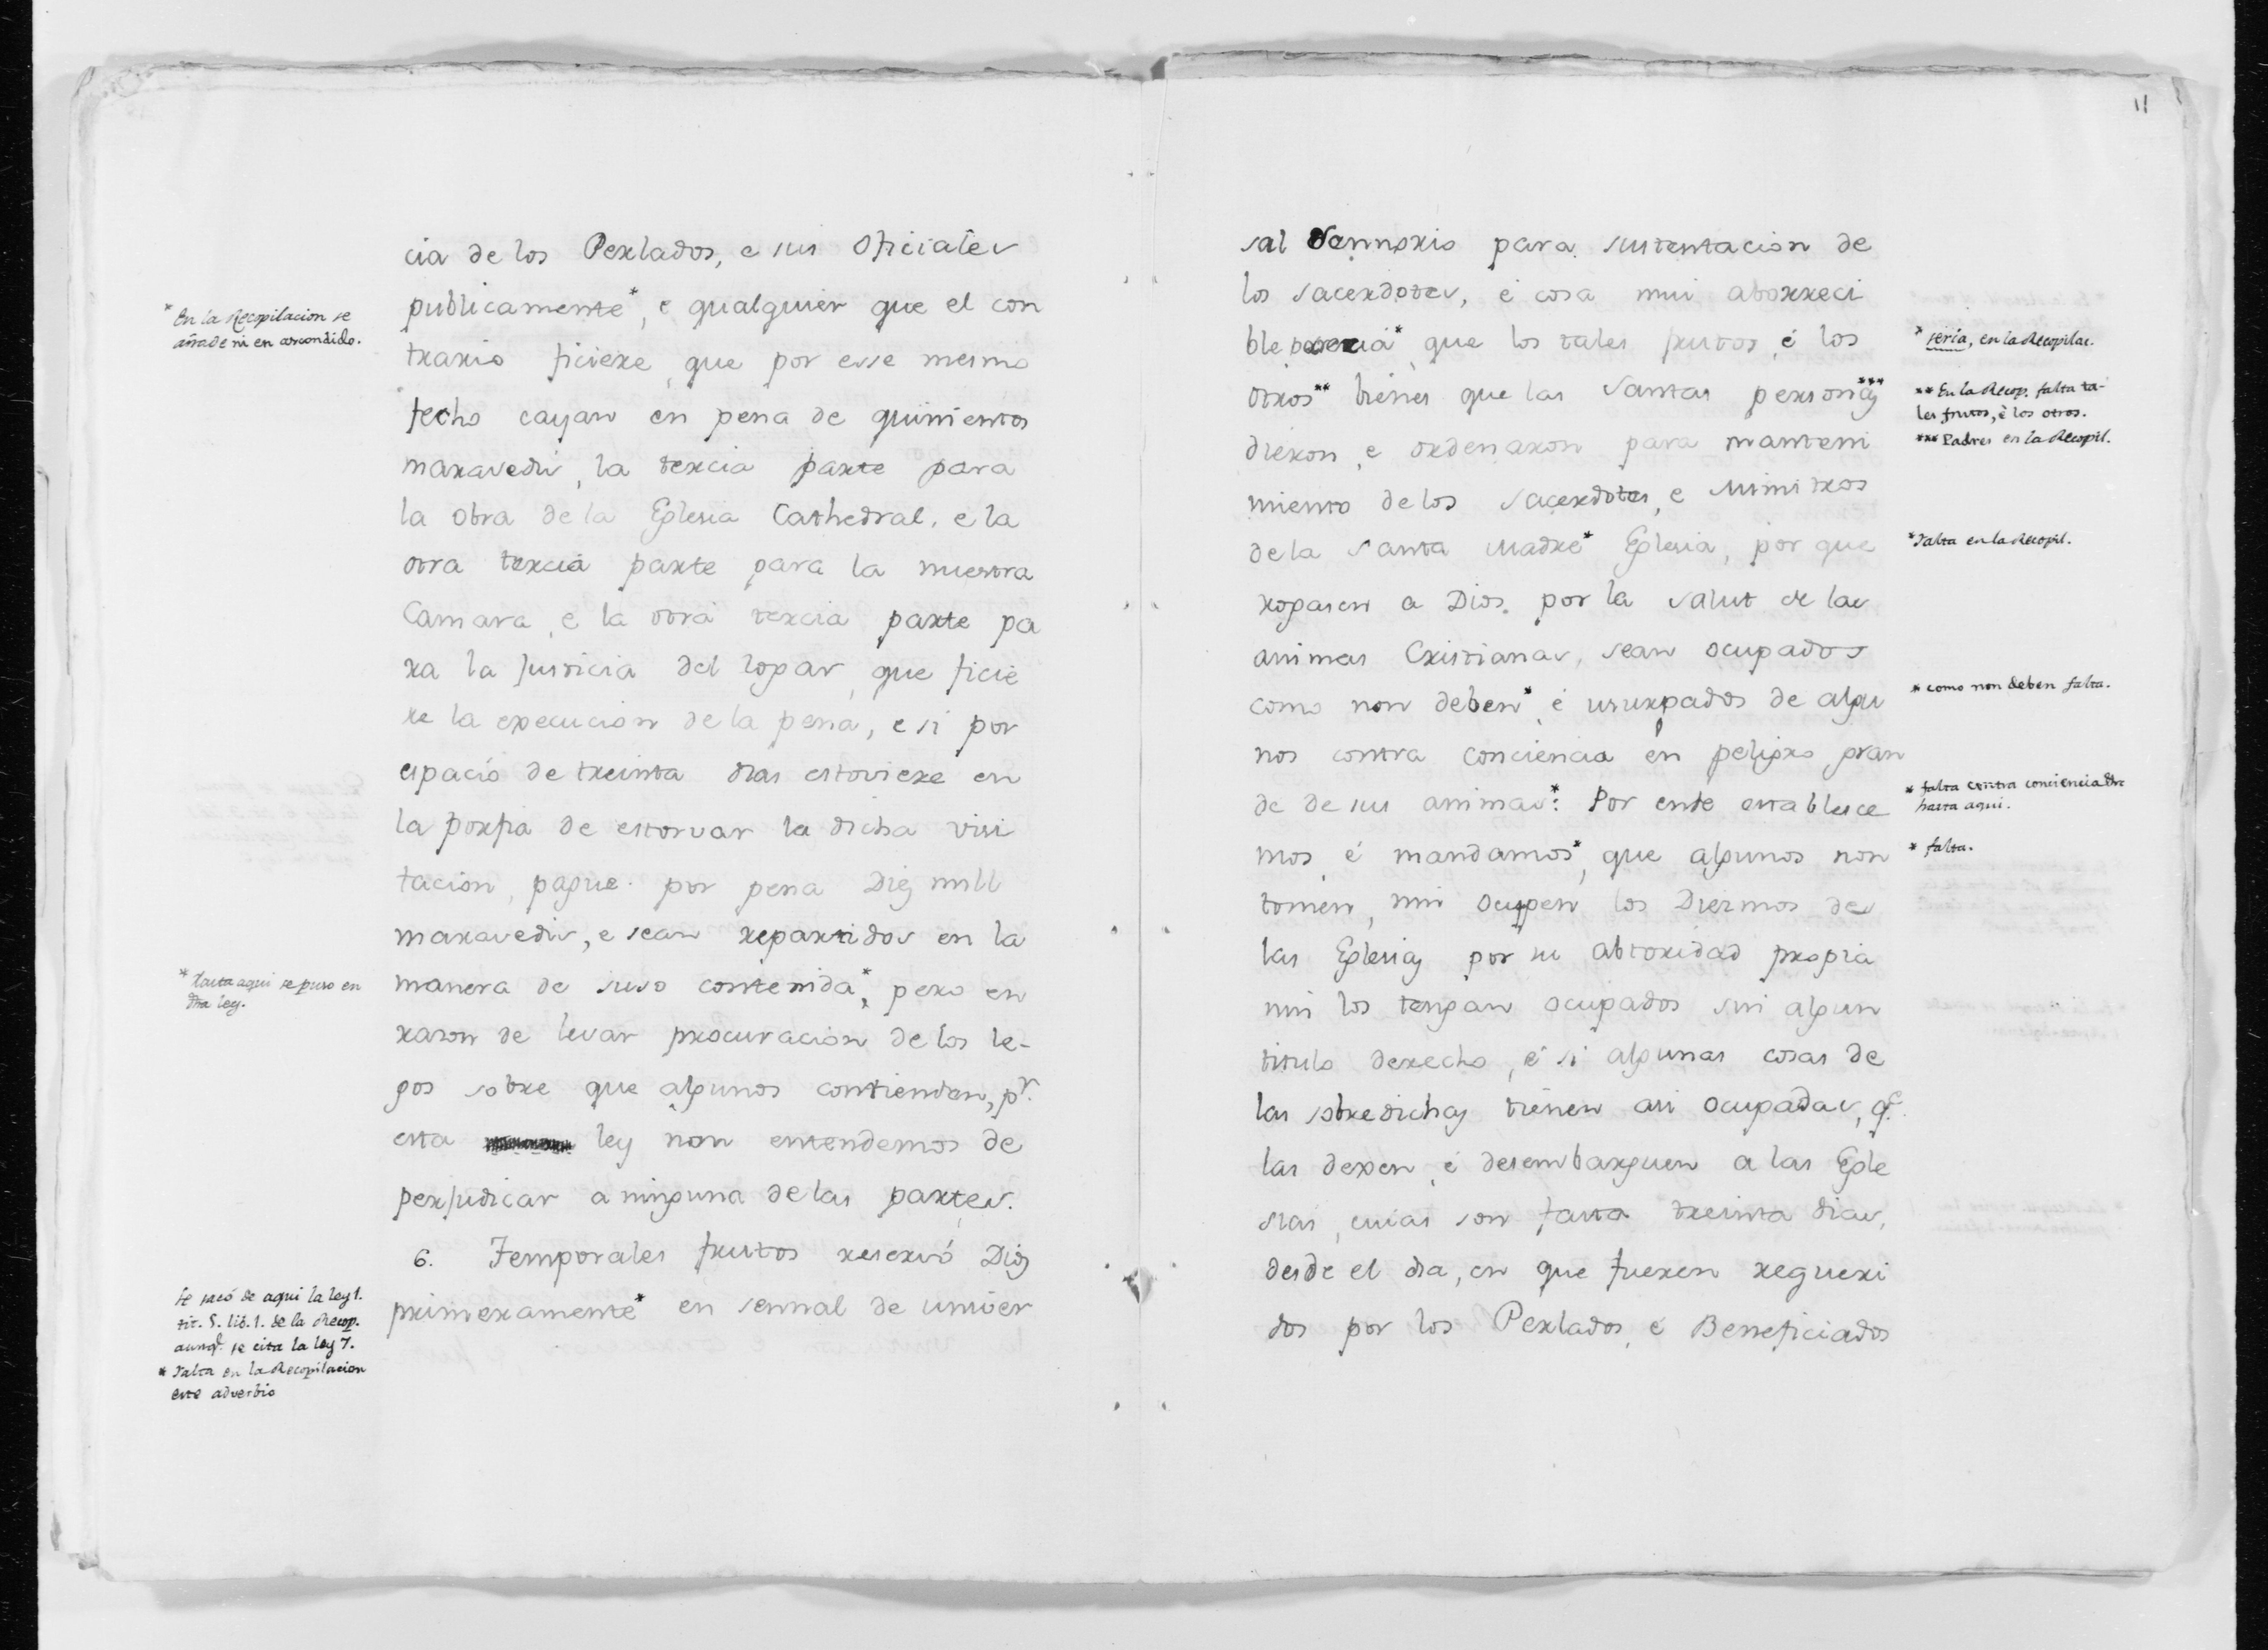 cia de los Perlados, e sus Oficiales
publicamente*, e qualquier que el con
trario ficiere, que por esse mesmo
fecho cayan en pena de quinientos
maravedis, la tercia parte para
la obra de la Eglesia Cathedral, e la
otra tercia parte para la nuestra
Camara, e la otra tercia parte pa
ra la Justicia del logar, que ficie
re la execucion de la pena, e si por
espacio de treinta dias estoviere en
la porfia de estorvar la dicha visi
tacion, pague por pena Diez mill
maravedis, e sean repartidos en la
manera de suso contenida*, pero en
razon de levar procuracion de los le-
gos sobre que algunos contienden, pr.
esta ley non entendemos de
perjudicar a ninguna de las partes.
6. Temporales frutos reservó Dios
primeramente* en sennal de univer
* En la Recopilacion se
añade ni en ascondido.
* hasta aqui se puso en
dha ley.
Se sacó de aqui la ley 1.
tit. 5. lib. 1. de la Recop.
aunq. se cita la ley 7.
* Falta en la Recopilacion
este adverbio
11
sal Sennorio para sustentacion de
los sacerdotes, é cosa mui aborreci
ble que los tales frutos, é los
otros** bienes que las Santas personas***
dieron, e ordenaron para manteni
miento de los Sacerdotes, e Ministros
de la Santa Madre* Eglesia, por que
rogasen a Dios por la salut de las
animas Cristianas, sean ocupados
como non deben*, é usurpados de algu
nos contra conciencia en peligro gran
de de sus animas*: Por ende establesce
mos, é mandamos*, que algunos non
tomen, nin ocupen los Diezmos de
las Eglesias por su abtoridad propria
nin los tengan ocupados sin algun
titulo derecho, é si algunas cosas de
las sobredichas tienen asi ocupadas, q.
las dexen, é desembarguen a las Egle
sias, cuias son fasta treinta dias,
desde el dia, en que fueren requeri
dos por los Perlados, é Beneficiados
* sería, en la Recopilac.
** En la Recop. falta ta-
les frutos, è los otros.
*** Padres en la Recopil.
* Falta en la Recopil.
* como non deben falta.
* falta contra conciencia &c
hasta aqui.
* falta.